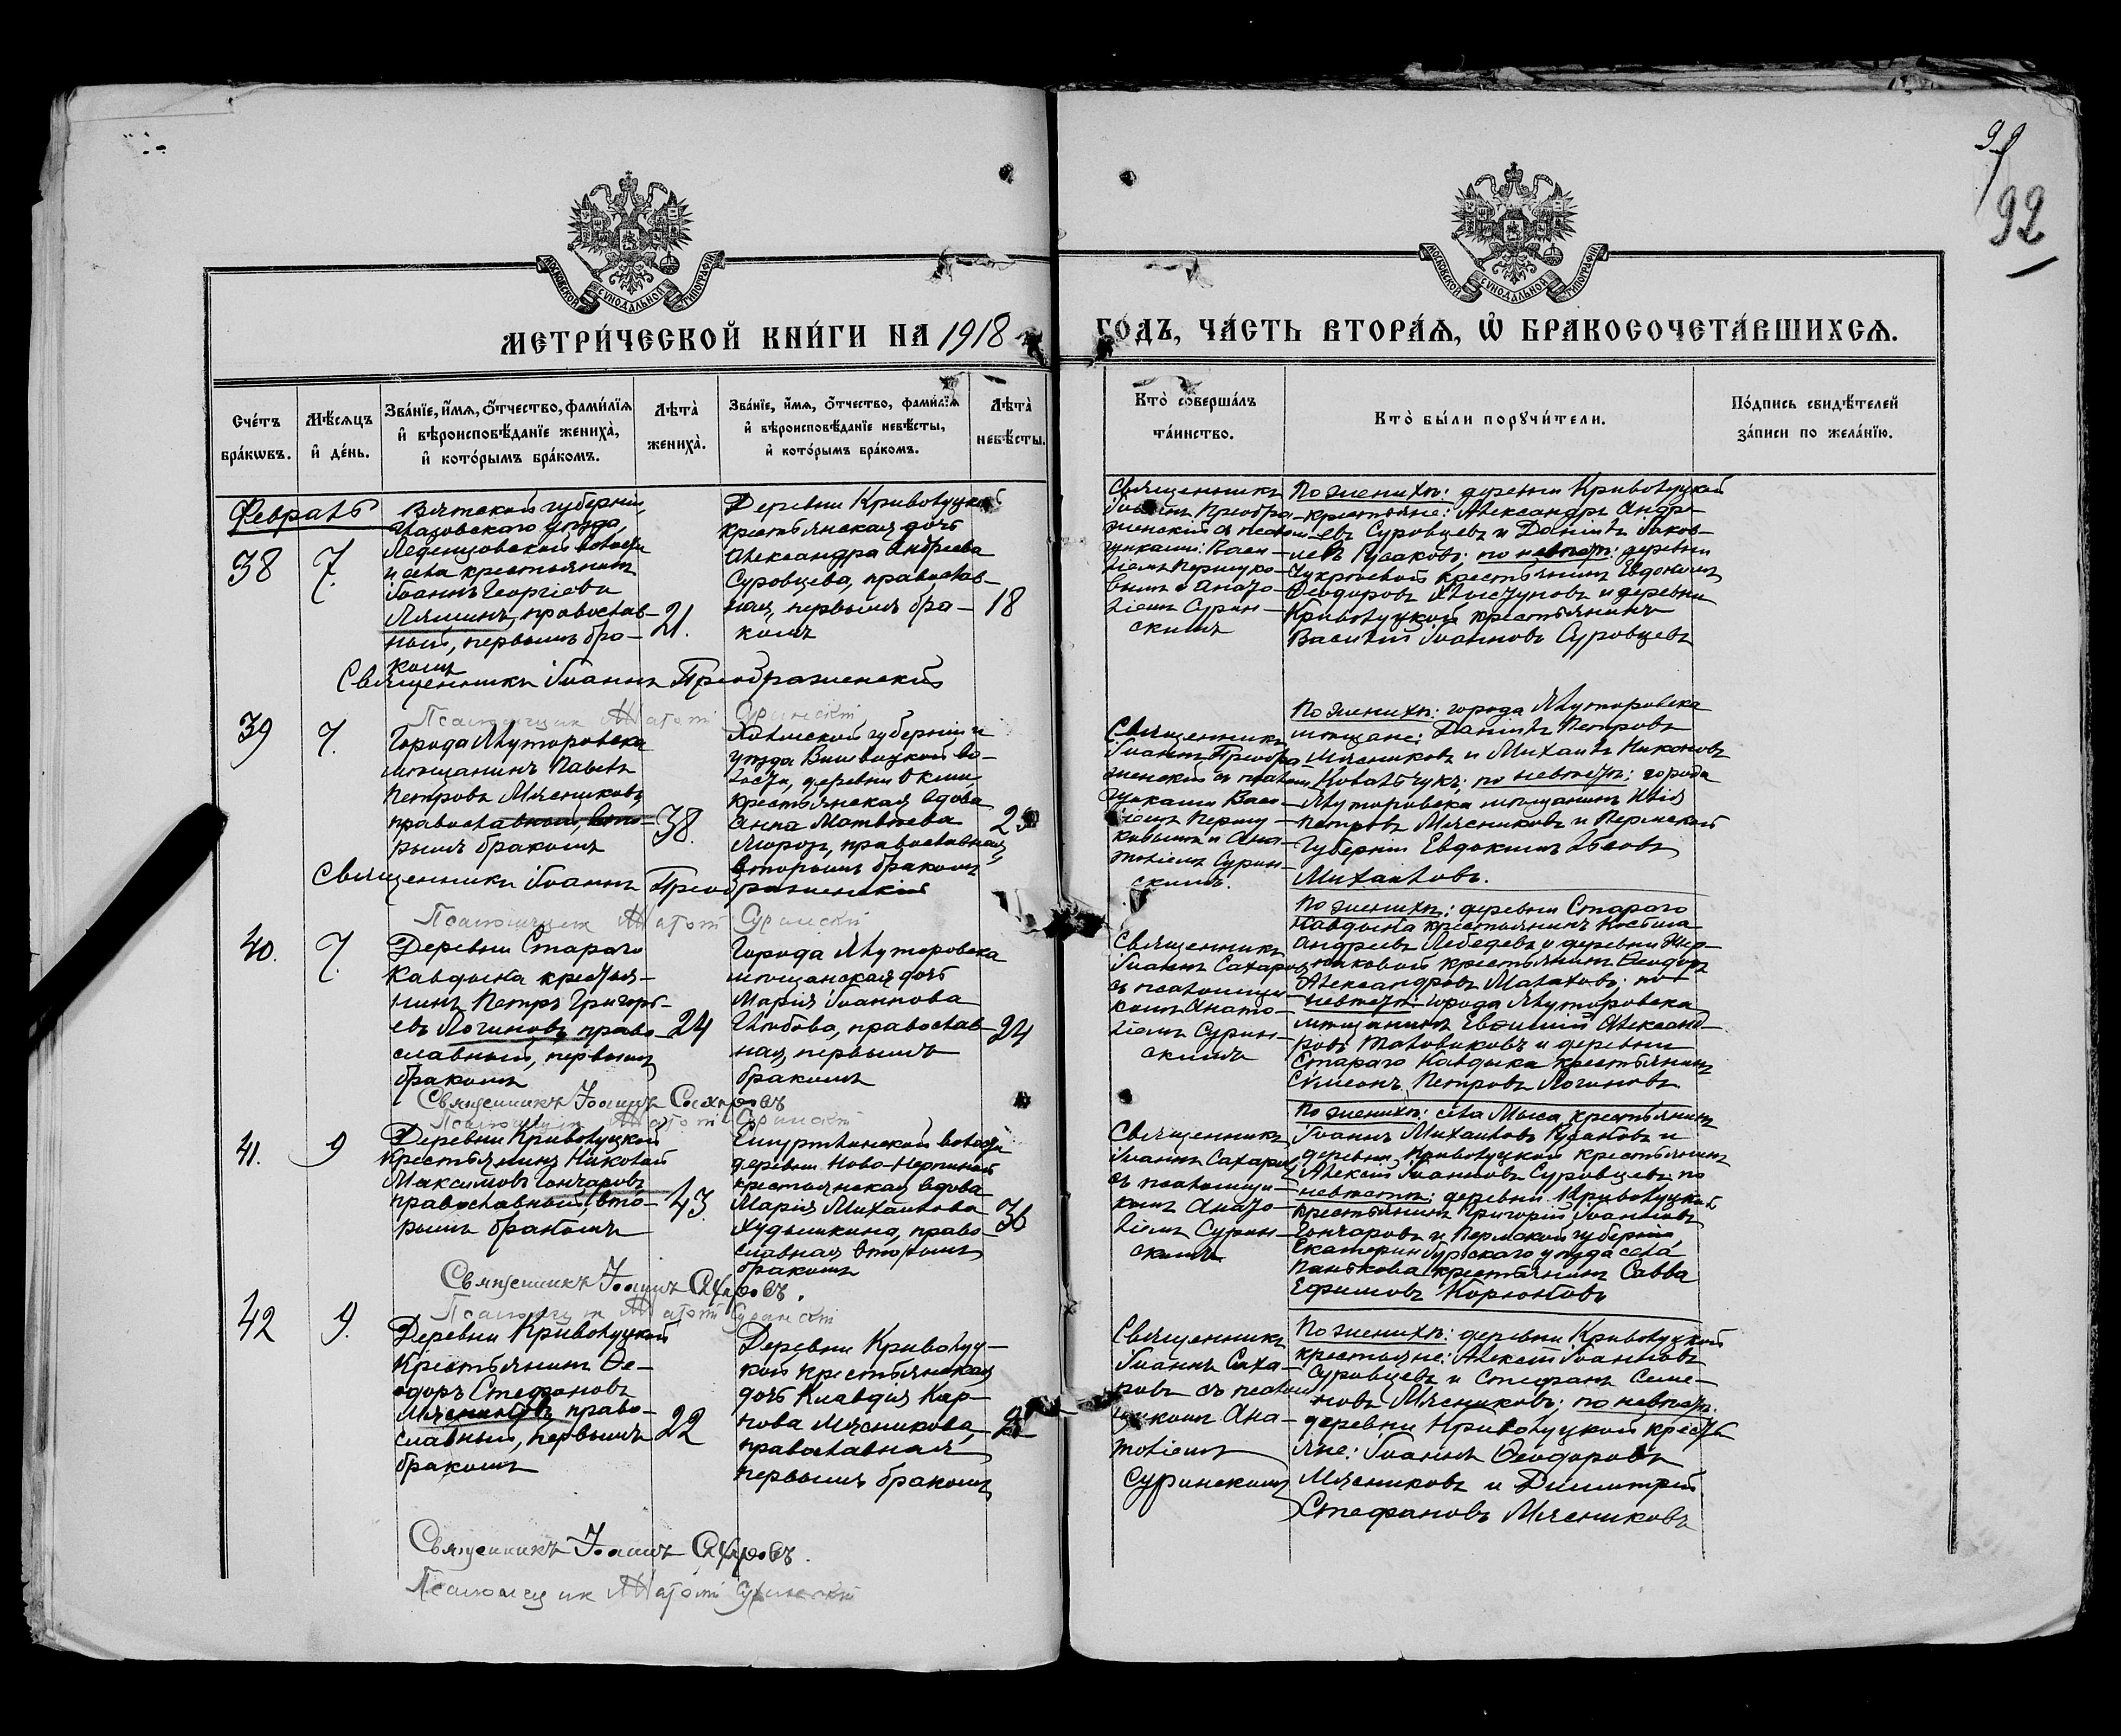 91
92
МОСКОВСКОЙ СѴНОДАЛЬНОЙ ТИПОГРАФІИ
МОСКОВСКОЙ СѴНОДАЛЬНОЙ ТИПОГРАФІИ
МЕТРИ́ЧЕСКОЙ КНИ́ГИ НА 1918
ГО́ДЪ, ЧА́СТЬ ВТОРА́Ѧ, Ѽ БРАКОСОЧЕТА́ВШИХСѦ.
Сче́тъ бра́кѡвъ.
Мѣ́сѧцъ и҆ де́нь.
Зва́нїе, и҆́мѧ, ѻ҆́тчество, фами́лїѧ
и҆ вѣроисповѣ́данїе жениха̀,
и҆ кото́рымъ бра́комъ.
Лѣта̀ жениха̀.
Зва́нїе, и҆́мѧ, ѻ҆́тчество, фами́лїѧ
и҆ вѣроисповѣ́данїе невѣ́сты,
и҆ кото́рымъ бра́комъ.
Лѣта̀ невѣ́сты.
Кто̀ соверша́лъ та́инство.
Кто̀ бы́ли порꙋчи́тели.
По́дпись свидѣ́телей
за́писи по жела́нїю.
Февраль
38
7.
Вятской губерніи,
Глазовскаго уѣзда,
волости
и села крестьянинъ
Іоаннъ Георгіевъ
Лямин, православ-
ный, первымъ бра-
комъ
21.
Деревни Криволуцкой
крестьянская дочь
Александра Андреева
Суровцева, православ-
ная, первымъ бра-
комъ
18
Священникъ
Іоаннъ Преобра-
женскій съ псалом-
щиками: Васи-
ліемъ Першуко-
вымъ и Анато-
ліемъ Сурин-
скимъ
По женихѣ: деревни Криволуцкой
крестьяне: Александръ Андре-
евъ Суровцевъ и Даніилъ Іаков-
левъ Русаковъ; по невѣстѣ: деревни
крестьянинъ Евдокимъ
Ѳеодоровъ и деревни
Криволуцкой крестьянинъ
Василій Іоанновъ Суровцевъ
Священникъ Іоаннъ Преображенскій
Псаломщик Анатолій Суринскій
39
7.
Города Ялуторовска
мѣщанинъ Павелъ
Петровъ Мясниковъ,
православный, вто-
рымъ бракомъ
38.
Холмской губерніи и
уѣзда во-
лости, деревни
крестьянская вдова
Анна Матвѣева
Мороз, православная,
вторымъ бракомъ
Священникъ
Іоаннъ Преобра-
женскій съ псалом-
щиками Васи-
ліемъ Першу-
ковымъ и Ана-
толіемъ Сурин-
скимъ.
По женихѣ: города Ялуторовска
мѣщане: Даніилъ Петровъ
Мясниковъ и Михаилъ Никоновъ
Ковальчукъ; по невѣстѣ: города
Ялуторовска мѣщанинъ Илія
Петровъ Мясниковъ и Пермской
губерніи Евдокимъ
Михаиловъ.
Священникъ Іоаннъ Преображенскій
Псаломщик Анатолій Суринскій
40.
7.
Деревни Стараго
Кавдыка крестья-
нинъ Петръ Григорь-
евъ Логиновъ, право-
славный, первымъ
бракомъ
24
Города Ялуторовска
мѣщанская дочь
Марія Іоаннова
Глѣбова, православ-
ная, первымъ
бракомъ
24
Священникъ
Іоаннъ Сахаровъ
съ псаломщи-
комъ Анато-
ліемъ Сурин-
скимъ
По женихѣ: деревни Стараго
Кавдыка крестьянинъ
Андреевъ Лебедевъ и деревни
крестьянинъ Ѳеодоръ
Александровъ Малаховъ; по
невѣстѣ: города Ялуторовска
мѣщанинъ Евѳимій Александ-
ровъ и деревни
Стараго Кавдыка крестьянинъ
Симеонъ Петровъ Логиновъ
Священникъ Іоаннъ Сахаровъ
Псаломщик Анатолій Суринскій
41.
9
Деревни Криволуцкой
крестьянинъ Николай
Максимовъ Гончаровъ
православный, вто-
рымъ бракомъ
43.
волости
деревни
крестьянская вдова
Марія Михаилова
Худышкина, право-
славная вторымъ
бракомъ
36
Священникъ
Іоаннъ Сахаровъ
съ псаломщи-
комъ Анато-
ліемъ Сурин-
скимъ
По женихѣ: села Мыса крестьянинъ
Іоаннъ Михаиловъ Русаковъ и
деревни Криволуцкой крестьянинъ
Алексій Іоанновъ Суровцевъ; по
невѣстѣ: деревни Криволуцкой
крестьянинъ Григорій Іоанновъ
Гончаровъ и Пермской губерніи,
Екатеринбургскаго уѣзда села
крестьянинъ Савва
Ефимовъ Корюковъ
Священникъ Іоаннъ Сахаровъ.
Псаломщик Анатолій Суринскій
42
9.
Деревни Криволуцкой
крестьянинъ Ѳе-
одоръ Стефановъ
Мясниковъ, право-
славный, первымъ
бракомъ
22
Деревни Криволуц-
кой крестьянская
дочь Клавдія Кар-
пова Мясникова,
православная
первымъ бракомъ
Священникъ
Іоаннъ Саха-
ровъ съ псалом-
щикомъ Ана-
толіемъ
Суринскимъ
По женихѣ: деревни Криволуцкой
крестьяне: Алексій Іоанновъ
Суровцевъ и Стефанъ Семе-
новъ Мясниковъ; по невѣстѣ:
деревни Криволуцкой кресть-
яне: Іоаннъ Ѳеодоровъ
Мясниковъ и Димитрій
Стефановъ Мясниковъ
Священникъ Іоаннъ Сахаровъ.
Псаломщик Анатолій Суринскій